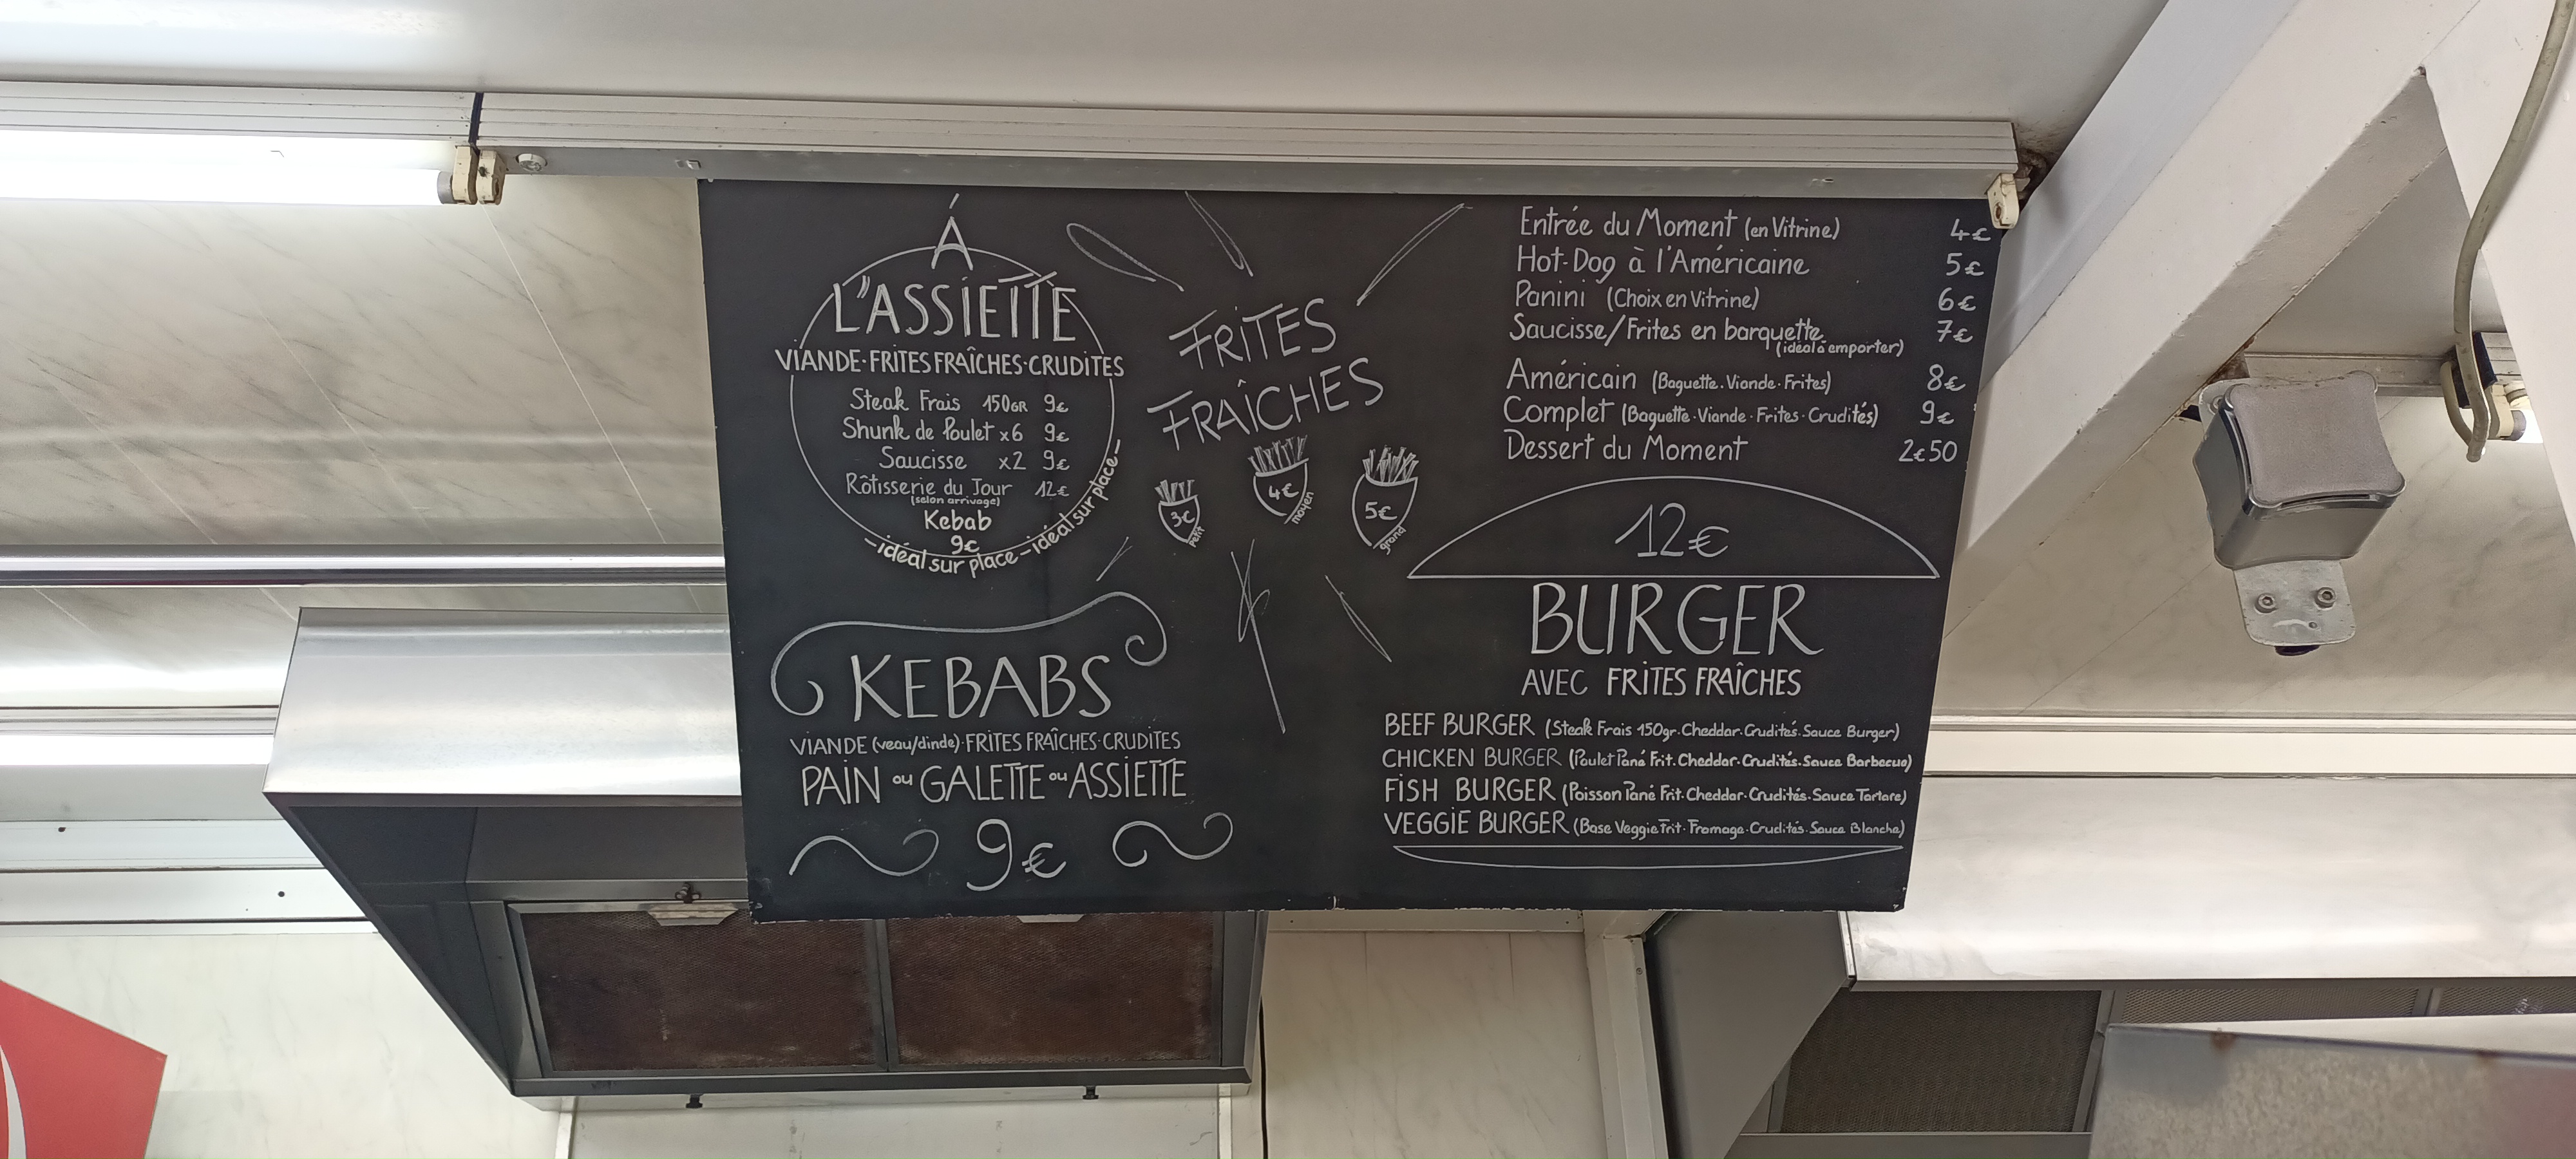 Á
L'ASSIETTE
VIANDE·FRITES FRAÎCHES·CRUDITES
Steak Frais 150GR 9€
Shunk de Poulet x6 9€
Saucisse x2 9€
Rôtisserie du Jour 12€
(selon arrivage)
Kebab
9€
-idéal sur place-idéal sur place-
FRITES
FRAÎCHES
3€ petit
4€ moyen
5€ grand
KEBABS
VIANDE (veau/dinde)·FRITES FRAÎCHES·CRUDITES
PAIN ou GALETTE ou ASSIETTE
9€
Entrée du Moment (en Vitrine) 4€
Hot-Dog à l'Américaine 5€
Panini (Choix en Vitrine) 6€
Saucisse/Frites en barquette 7€
(idéal à emporter)
Américain (Baguette·Viande·Frites) 8€
Complet (Baguette·Viande·Frites·Crudités) 9€
Dessert du Moment 2€50
12€
BURGER
AVEC FRITES FRAÎCHES
BEEF BURGER (Steak Frais 150gr·Cheddar·Crudités·Sauce Burger)
CHICKEN BURGER (Poulet Pané Frit·Cheddar·Crudités·Sauce Barbecue)
FISH BURGER (Poisson Pané Frit·Cheddar·Crudités·Sauce Tartare)
VEGGIE BURGER (Base Veggie Frit·Fromage·Crudités·Sauce Blanche)